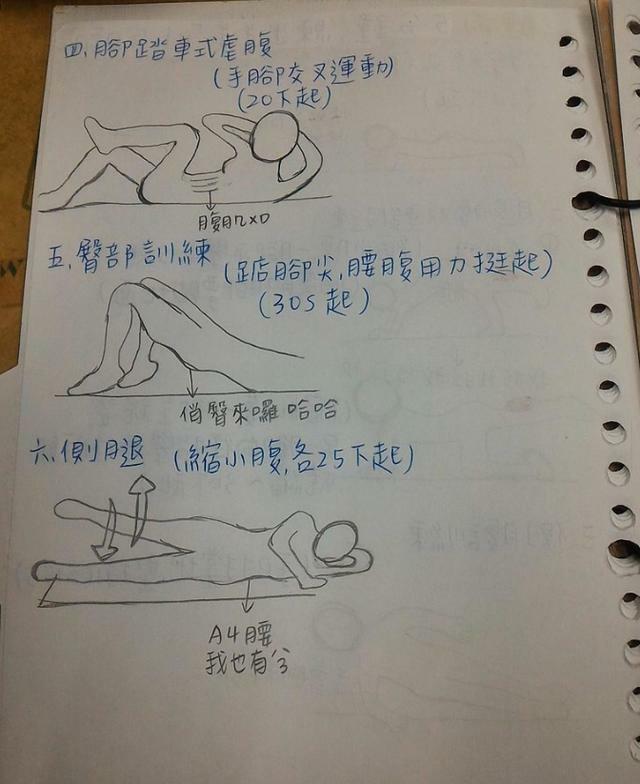 四、腳踏車式虐腹
(手腳交叉運動)
(20下起)
腹肌XD
五、臀部訓練 (踮腳尖,腰腹用力挺起)
(30S起)
俏臀來囉 哈哈
六、側腿 (縮小腹,各25下起)
A4腰
我也有